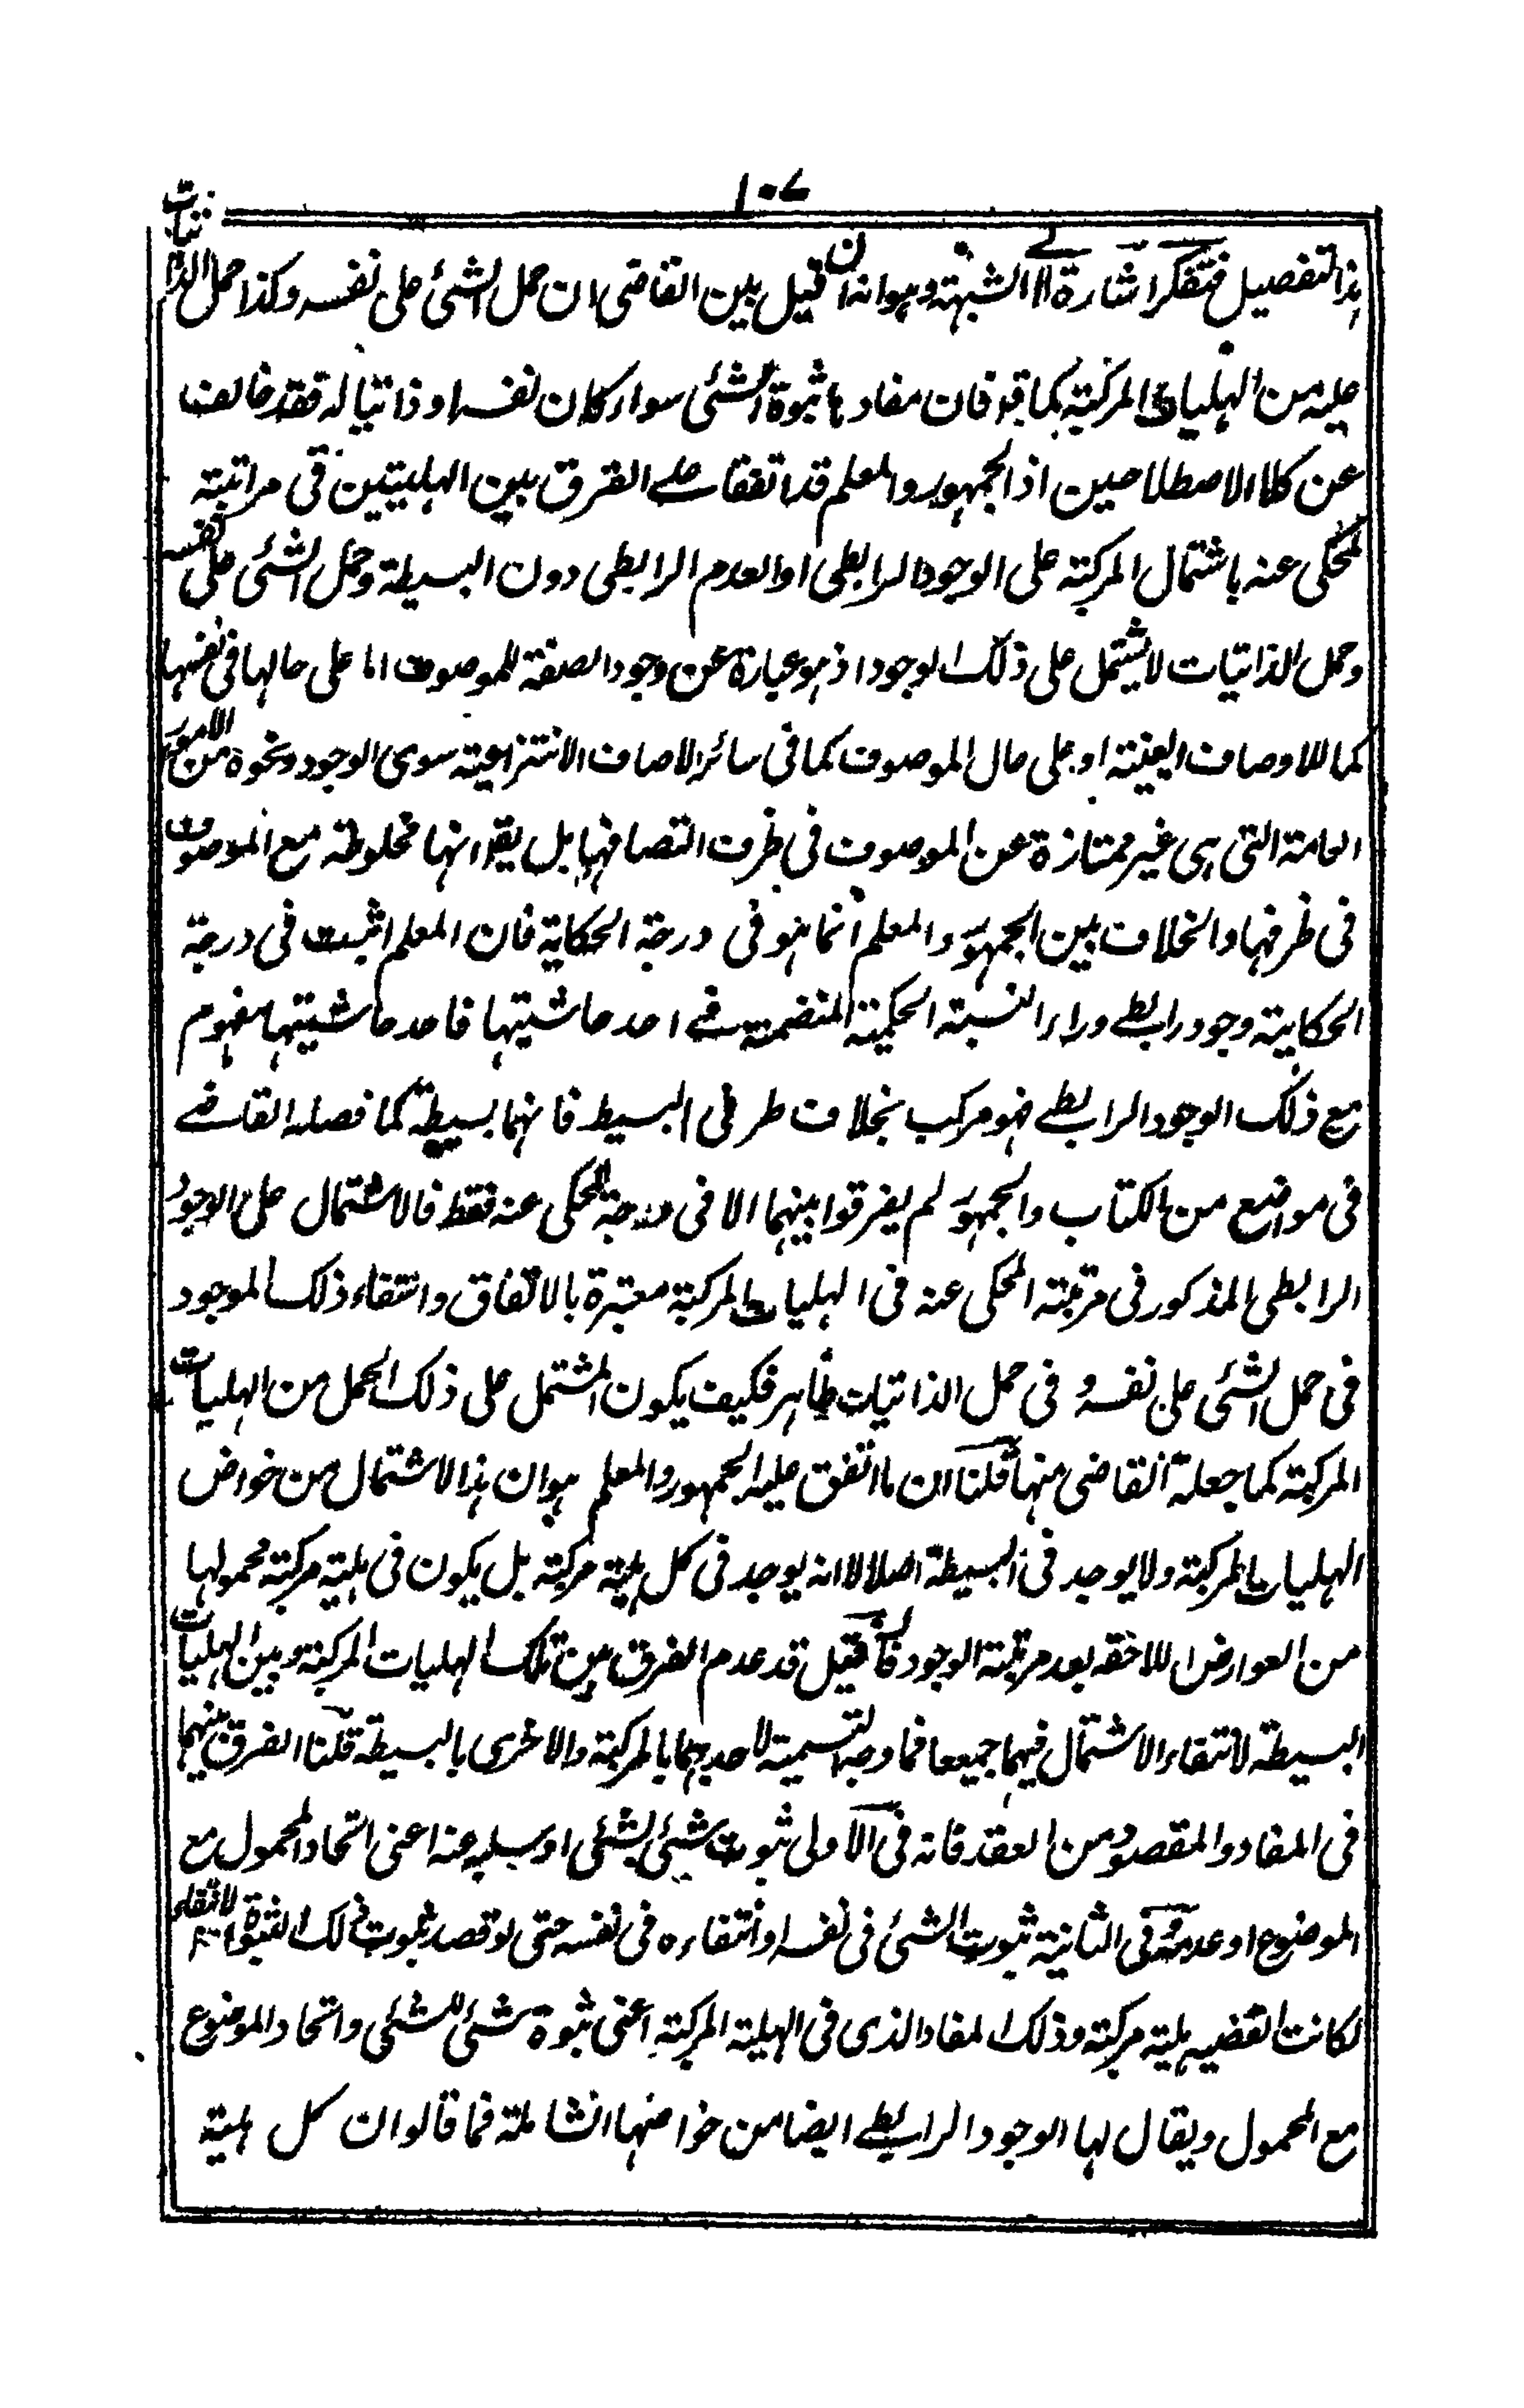 ١٠٧
هذا التفصيل فتفكر اشارة الى الشبهة وهو انه ان قيل بين القاضى ان حمل الشئ على نفسه وكذا حمل الذاتيات
عليه من الهليات المركبة كما قد فان مفادها ثبوة الشئ سواء كان نفسه او ذاتيا له فقد خالف
عن كلا الاصطلاحين اذ الجمهور والمعلم قد اتفقا على الفرق بين الهليتين فى مراتبة
المحكى عنه باشتمال المركبة على الوجود الرابطى او العدم الرابطى دون البسيطة وحمل الشئ على نفسه
وحمل الذاتيات لا يشتمل على ذلك الوجود اذ هو عبارة عن وجود الصفة للموصوف اما على حالها فى نفسها
كما للاوصاف العينية او على حال الموصوف كما فى سائر الاصاف الانتزاعية سوى الوجود ونحوه من الامور
العامة التى هى غير ممتازة عن الموصوف فى ظرف اتصافها بل يقال انها مخلوطة مع الموصوف
فى ظرفها والخلاف بين الجمهور والمعلم انما هو فى درجة الحكاية فان المعلم اثبت فى درجة
الحكاية وجود رابطے وراء النسبة الحكمية المنضمة فے احد حاشيتها فاحد حاشيتها مفهوم
مع ذلك الوجود الرابطے فهو مركب بخلاف طرفى البسيط فانهما بسيطة كما فصله القاضے
فى مواضع من الكتاب والجمهور لم يفرقوا بينهما الا فى درجة المحكى عنه فقط فالاشتمال على الوجود
الرابطى المذكور فى مرتبة المحكى عنه فى الهليات المركبة معتبرة بالاتفاق وانتفاء ذلك الموجود
فى حمل الشئ على نفسه و فى حمل الذاتيات ظاهر فكيف يكون المشتمل على ذلك الحمل من الهليات
المركبة كما جعلة القاضى منها قلنا ان ما اتفق عليه الجمهور والمعلم هو ان هذا الاشتمال من خواص
الهليات المركبة ولا يوجد فى البسيطة اصلا لا انه يوجد فى كل هلية مركبة بل يكون فى هلية مركبة محمولها
من العوارض اللاحقة بعد مرتبة الوجود فان قيل قد عدم الفرق بين تلك الهليات المركبة وبين الهليات
البسيطة لانتفاء الاشتمال فيهما جميعا فما وجه التسمية لاحدهما بالمركبة والاخرى بالبسيطة قلنا الفرق بينهما
فى المفاد والمقصود من العقد فانه فى الاولى ثبوت شئ لشئ او سلبه عنه اعنى اتحاد المحمول مع
الموضوع او عدمه وفى الثانية ثبوت الشئ فى نفسه او انتفاءه فى نفسه حتى لو قصد ثبوت ذلك الثبوة او الانتفاء
لكانت القضيه هلية مركبة وذلك المفاد الذى فى الهلية المركبة اعنى ثبوة شئ للشئ واتحاد الموضوع
مع المحمول ويقال لها الوجود الرابطے ايضا من خواصها الشاملة فما قالوا ان كل هلية